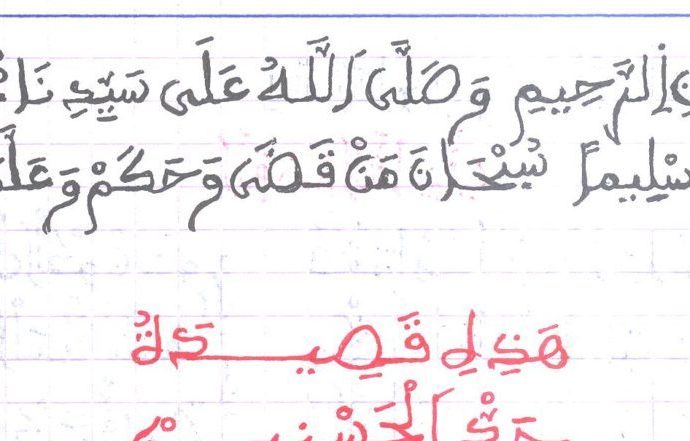 اِلرَّحِيمِ وَصَلَّى اَللَّهُ عَلَى سَيِّدِنَا
سْلِيماً سُبْحَانَ مَنْ قَضَى وَحَكَمْ وَعَلَّ
هَذِهِ قَصِيدَةٌ